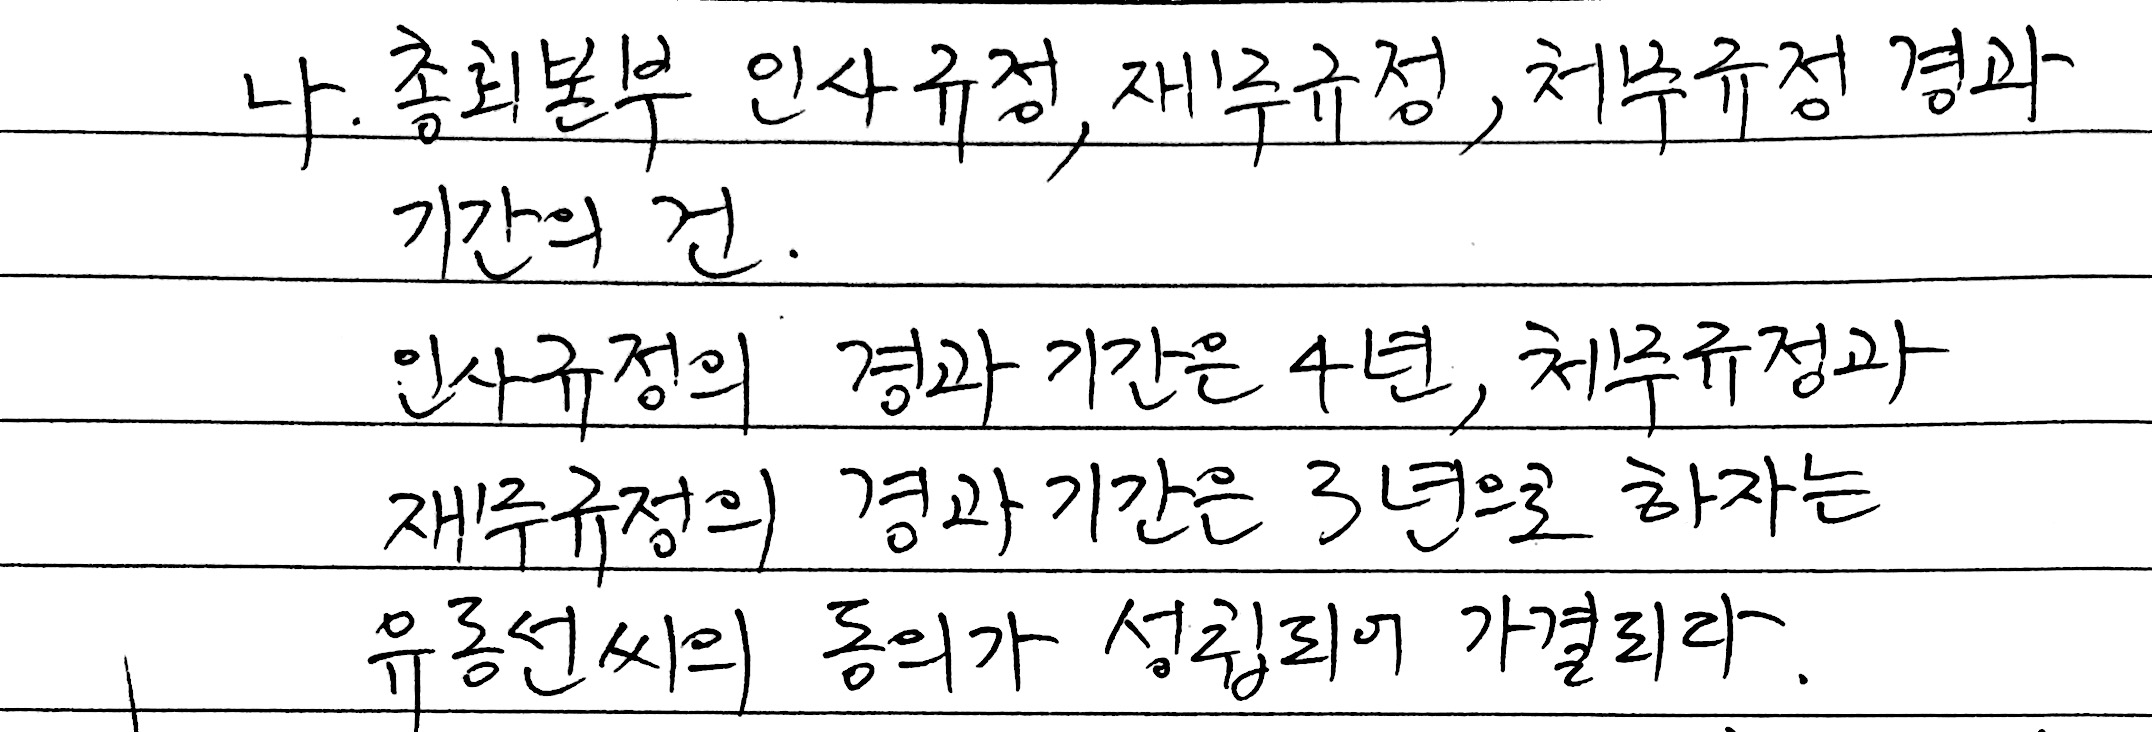 나. 총회본부 인사규정, 재무규정, 처무규정 경과
기간의 건.
인사규정의 경과 기간은 4년, 처무규정과
재무규정의 경과 기간은 3년으로 하자는
유동선씨의 동의가 성립되어 가결되다.